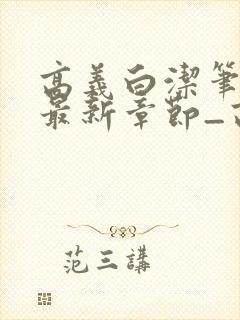 高義白潔筆
最新章節_
范三講